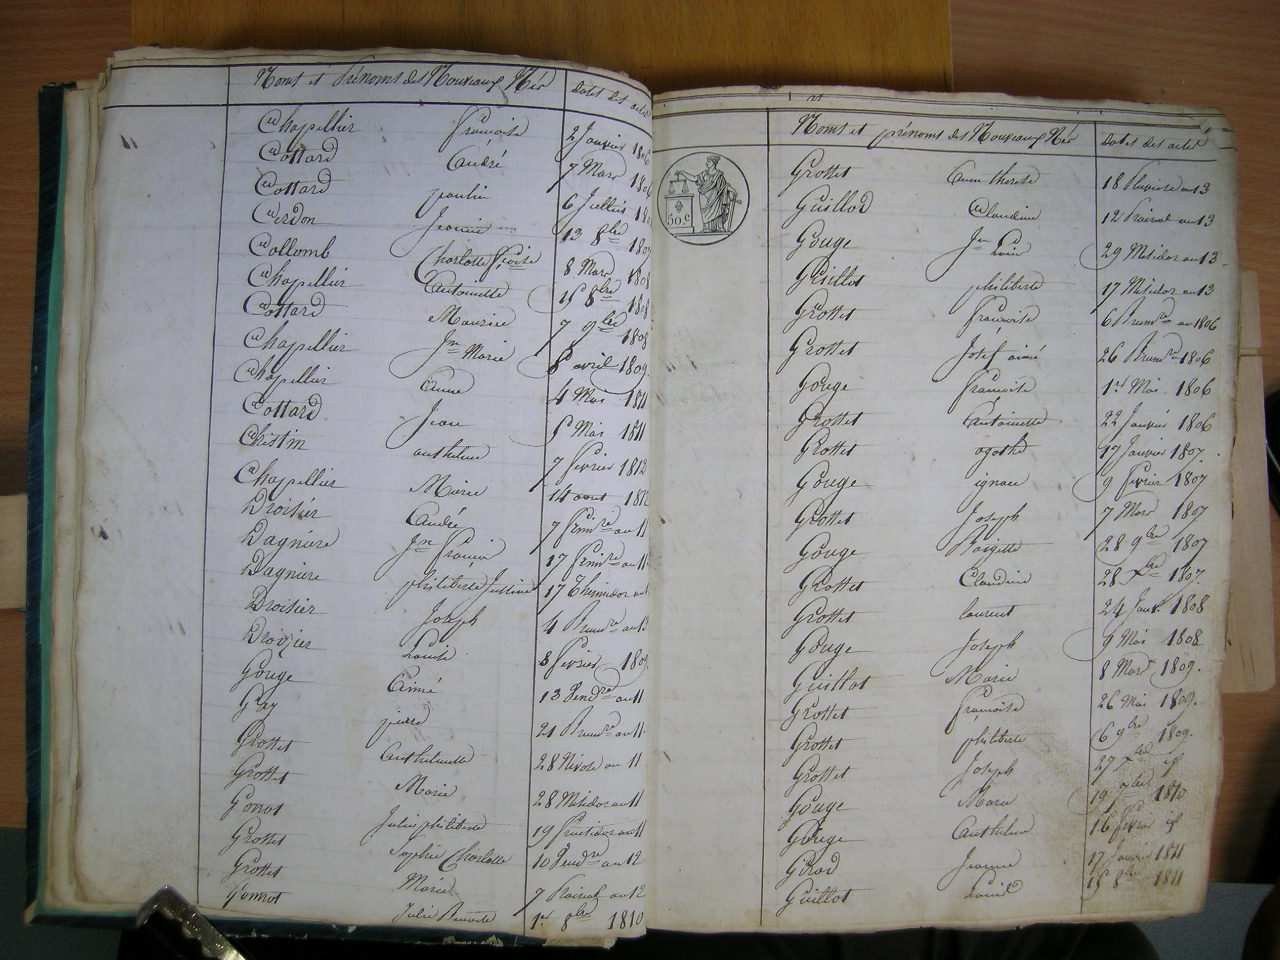 Noms et Prénoms des Nouveaux Nés Dates des actes
Chapellier françoise 2 Janvier 1806
Cottard André 7 Mars
Cottard paulin 6 Juillet
Cerdon Jeanne 13 8bre 1807
Collomb Charlotte 8 Mars 1808
Chapellier Antoinette 15 8bre 1808
Cottard Maurise 7 9bre 1808
Chapellier Jn Marie 8 avril 1809
Chapellier Anne 4 Mai 1811
Cottard Jean 5 Mai 1811
Christin anthelme 7 fevrier 1812
Chapellier Marie 14 aout 1812
Droisier André 7 frimre an 11
Dagniere Jn françois 17 frimre an 11
Dagniere philiberte Justine 17 Thermidor
Droisier Joseph 4 Brumre an 13
Droizier Louise 8 fevrier 1809
Gouge Aimé 13 Vendre an 11
Gay pierre 21 Brumre an 11
Grottet Anthelmette 28 Nivose an 11
Grottet Marie 28 Messidor an 11
Gonnot Julie philiberte 19 fructidor an 11
Grottet Sophie Charlotte 10 Vendre an 12
Grottet Marie 7 Prairial an 12
Gonnot Julie 1er 8bre 1810
Noms et prénoms des Nouveaux Nés Dates des actes
50 c
Grottet Anne therese 18 Pluviose an 13
Guillod Claudine 12 Prairial an 13
Gouge Jn 29 Messidor an 13
Guillot philiberte 17 Messidor an 13
Grottet françoise 6 Brumre an 1806
Grottet Josef aimé 26 Brumre 1806
Gouge françoise 1er Mai 1806
Grottet Antoinette 22 Janvier 1806
Grottet agathe 17 Janvier 1807
Gouge ignace 9 fevrier 1807
Grottet Joseph 7 Mars 1807
Gouge 28 9bre 1807
Grottet Claudine 28 Xbre 1807
Grottet laurent 24 Janv. 1808
Gouge Joseph 9 Mai 1808
Guillot Marie 8 Mars 1809
Grottet françoise 26 Mai 1809
Grottet philiberte 6 9bre 1809
Grottet Joseph 27 Xbre
Gouge Marie 19 1810
Gouge Anthelme 16 fevrier
Girod Jeanne 17 Janvier 1811
Guillot Louise 15 8bre 1811